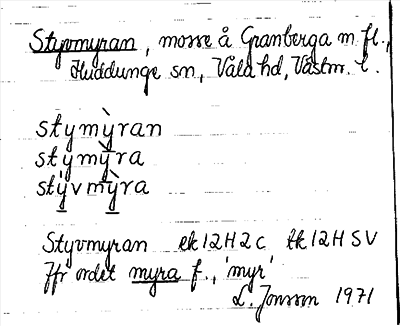 Styvmyran, mosse å Granberga m. fl.,
Huddunge sn, Våla hd, Västm. l.
stymỳran
stymỳra
stývmỳra
Styvmyran ek 12H 2c tk 12H SV
Jfr ordet myra f., 'myr'
L. Jonsson 1971